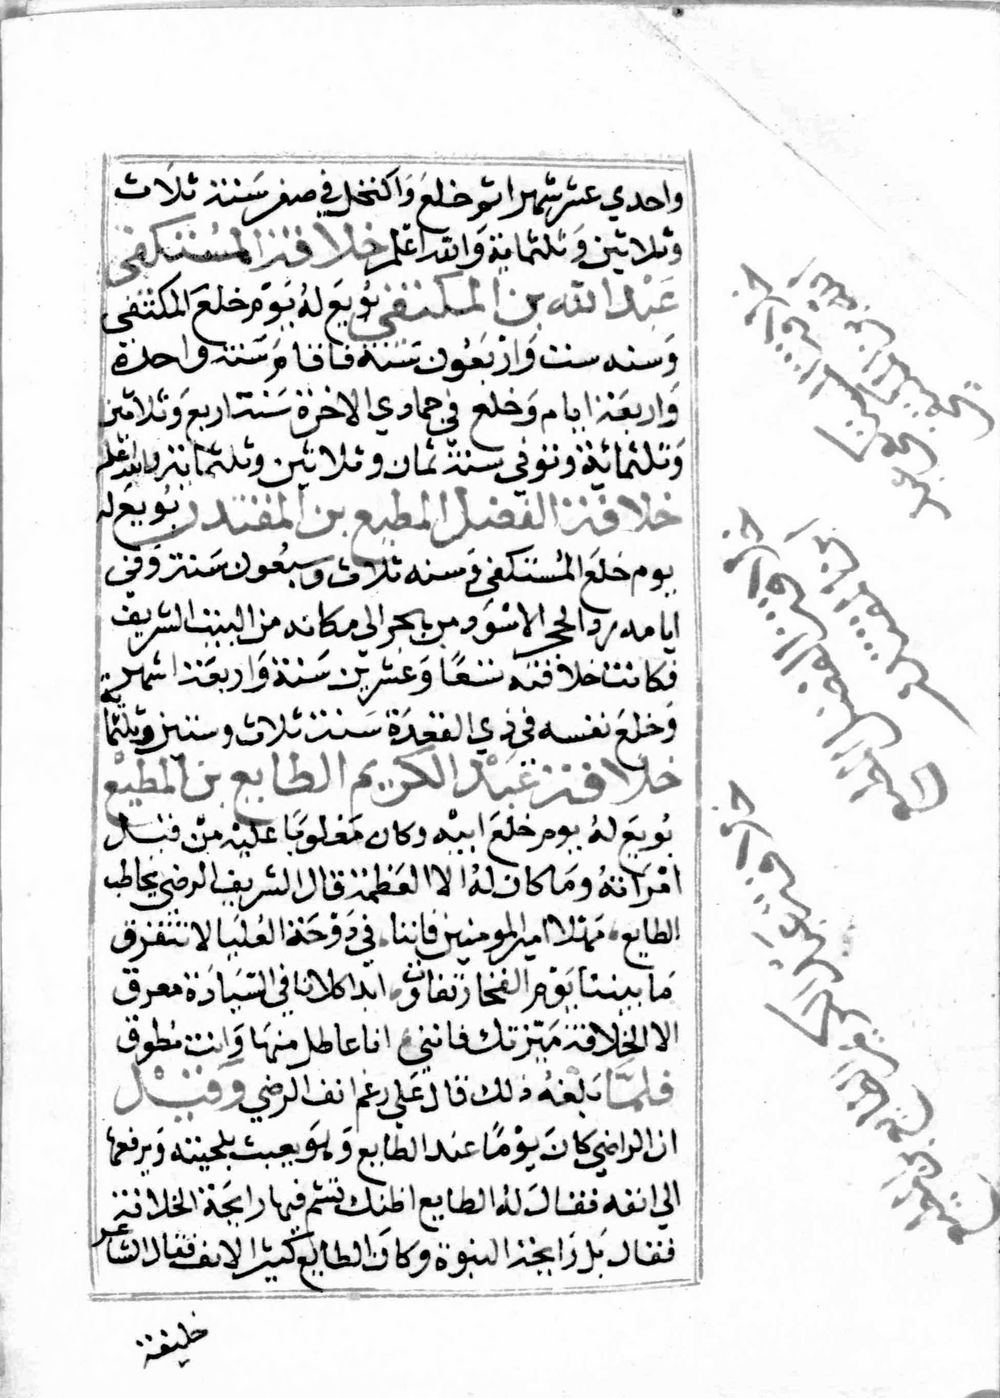 واحدي عشر شهرا ثم خلع واكتحل في صفر سنة ثلاث
وثلاثين وثلثماية والله اعلم خلافة المستكفي
عبد الله بن المكتفي بويع له يوم خلع المكتفى
وسنه ست واربعون سنة فاقام سنة واحدة
واربعة ايام وخلع في جمادي الاخرة سنة اربع وثلاثين
وثلثمائة وتوفي سنة ثمان وثلاثين وثلثماية والله اعلم
خلافة الفضل المطيع بن المقتدر بويع له
يوم خلع المستكفي وسنه ثلاث وسبعون سنة وفي
ايامه رد الحجر الاسود من بحر الي مكانه من البيت الشريف
فكانت خلافته تسعا وعشرين سنة واربعة اشهر
وخلع نفسه في ذي القعدة سنة ثلاث وستين وثلثماية
خلافة عبد الكريم الطايع بن المطيع
بويع له يوم خلع ابيه وكان مغلوبا عليه من قبل
امراته وما كان له الا العظمة قال الشريف الرضي يخاطب
الطايع مهلا امير المومنين فاننا في دوحة العليا لا نتفرق
ما بيننا يوم الفخار تفاوت ابدا كلانا في السيادة معرق
الا الخلافة ميزتك فانني انا عاطل منها وانت مطوق
فلما بلغه ذلك قال على رغم انف الرضي وقيل
ان الراضي كان يوما عند الطايع وهو يعبث بلحيته ويرفعها
الي انفه فقال له الطايع اظنك تشم فيها رايحة الخلافة
فقال بل رايحة النبوة وكان الطايع كبير الانف فقال الشاعر
خليفة
خلافة المستكفي
خلافة الفضل المطيع
ابن المقتدر
خلافة عبد الكريم الطايع
ابن المطيع